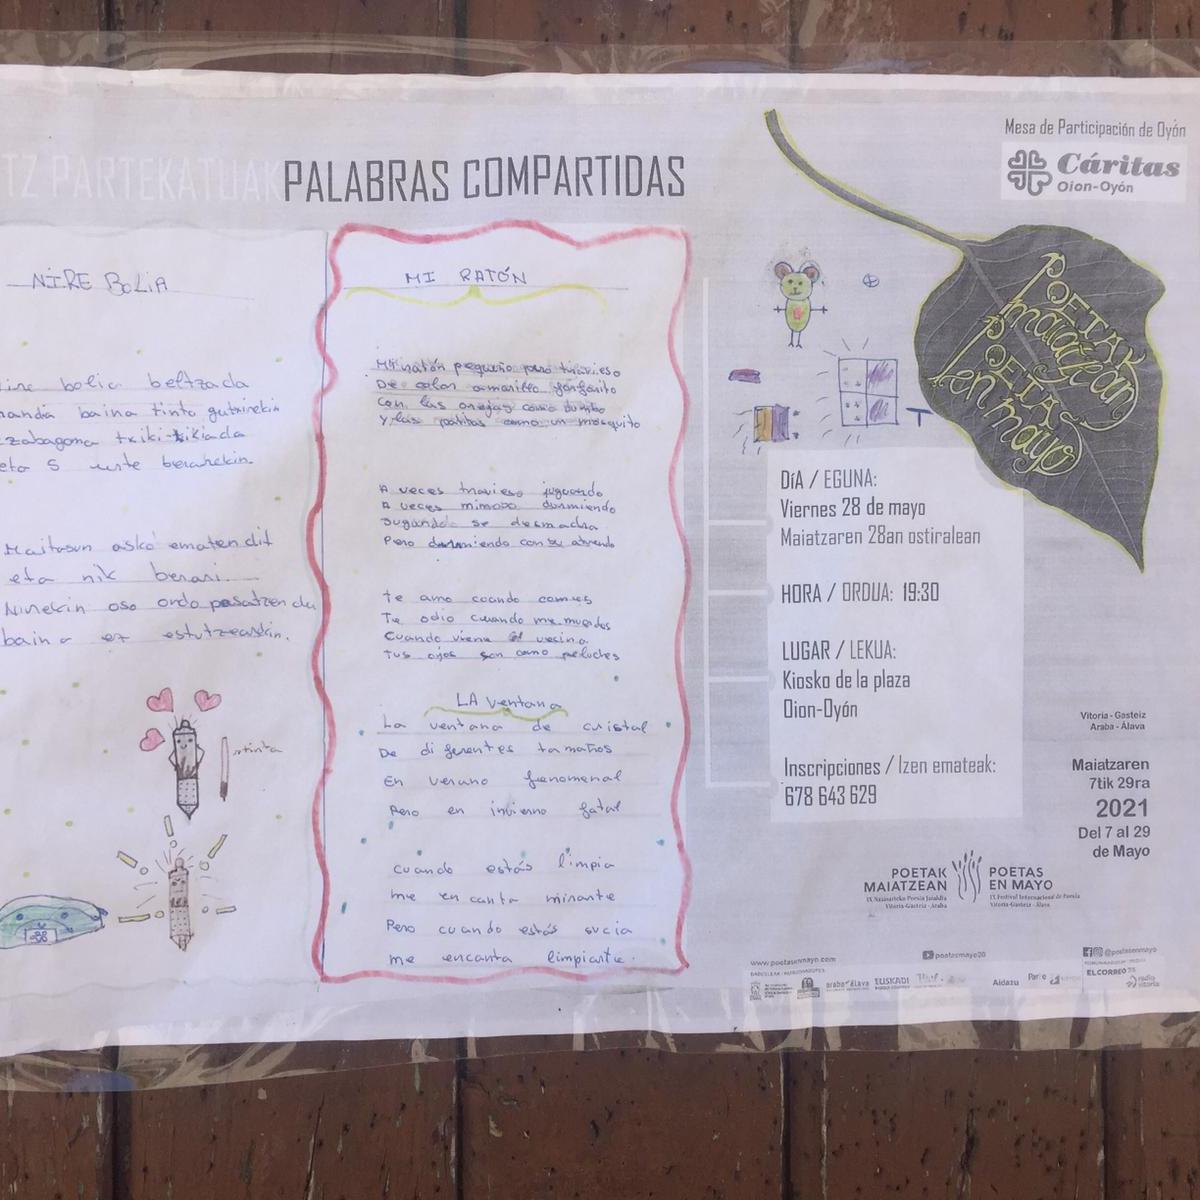 TZ PARTEKATUAK PALABRAS COMPARTIDAS
NIRE BOLIA
bolia beltzada
handia baina tinta gutxirekin
txiki-txikiada
eta 5 urte berarekin.
Maitasun asko ematen dit
eta nik berari.
Nirekin oso ondo pasatzen du
baina ez estutzearekin.
tinta
MI RATÓN
Mi ratón pequeño pero travieso
De color amarillo
Con las orejas como dumbo
y las patitas como un mosquito
A veces travieso jugando
A veces mimoso durmiendo
Jugando se desmadra
Pero durmiendo con su
te amo cuando comes
Te odio cuando me muerdes
Cuando viene el vecino
Tus ojos son como peluches
LA Ventana
La ventana de cristal
De diferentes tamaños
En verano fenomenal
Pero en invierno fatal
Cuando estás limpia
me encanta mirarte
Pero cuando estás sucia
me encanta limpiarte.
Mesa de Participación de Oyón
Cáritas
Oion-Oyón
POETAK
maiatzean
POETAS
en mayo
DÍA / EGUNA:
Viernes 28 de mayo
Maiatzaren 28an ostiralean
HORA / ORDUA: 19:30
LUGAR / LEKUA:
Kiosko de la plaza
Oion-Oyón
Inscripciones / Izen emateak:
678 643 629
Vitoria - Gasteiz
Araba - Álava
Maiatzaren
7tik 29ra
2021
Del 7 al 29
de Mayo
POETAK
MAIATZEAN
IX Nazioarteko Poesia Jaialdia
Vitoria-Gasteiz - Araba
POETAS
EN MAYO
IX Festival Internacional de Poesía
Vitoria-Gasteiz - Álava
www.poetasenmayo.com
poetasmayo20
@poetasenmayo
araba álava
EUSKADI
Aidazu
EL CORREO
radio
vitoria